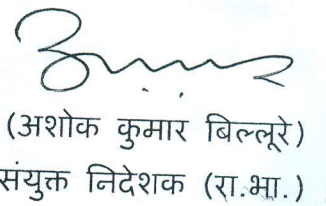 (अशोक कुमार बिल्लूरे)
संयुक्त निदेशक (रा.भा.)